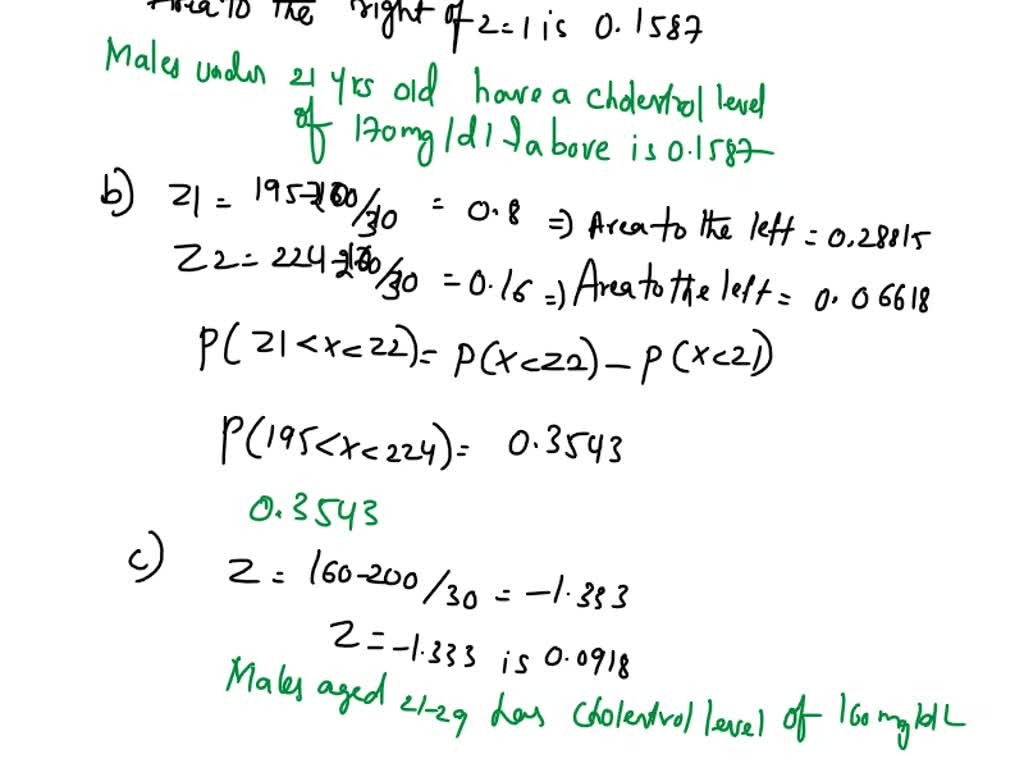 Area to the right of z=1 is 0.1587
Males under 21 yrs old have a cholestrol level
of 170mg/dl & above is 0.1587
b) Z1 = 195-200/30 = 0.8 => Area to the left = 0.28815
Z2 = 224-200/30 = 0.16 => Area to the left = 0.06618
P(Z1<x<Z2) = P(x<Z2) - P(x<Z1)
P(195<x<224) = 0.3543
0.3543
c) Z = 160-200/30 = -1.333
Z = -1.333 is 0.0918
Males aged 21-29 has cholestrol level of 160mg/dL